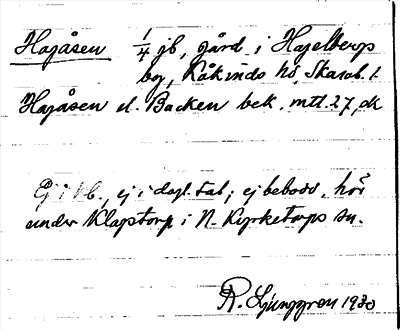 Hajåsen 1/4 jb, gård i Hagelbergs
bg, Kåkinds hd, Skarab. l.
Hajåsen el. Backen bek. mtl. 27, dk
Ej i Vb., ej i dagl. tal; ej bebodd. hör
under Klapstorp i N. Kyrketorps sn.
R. Ljunggren 1930